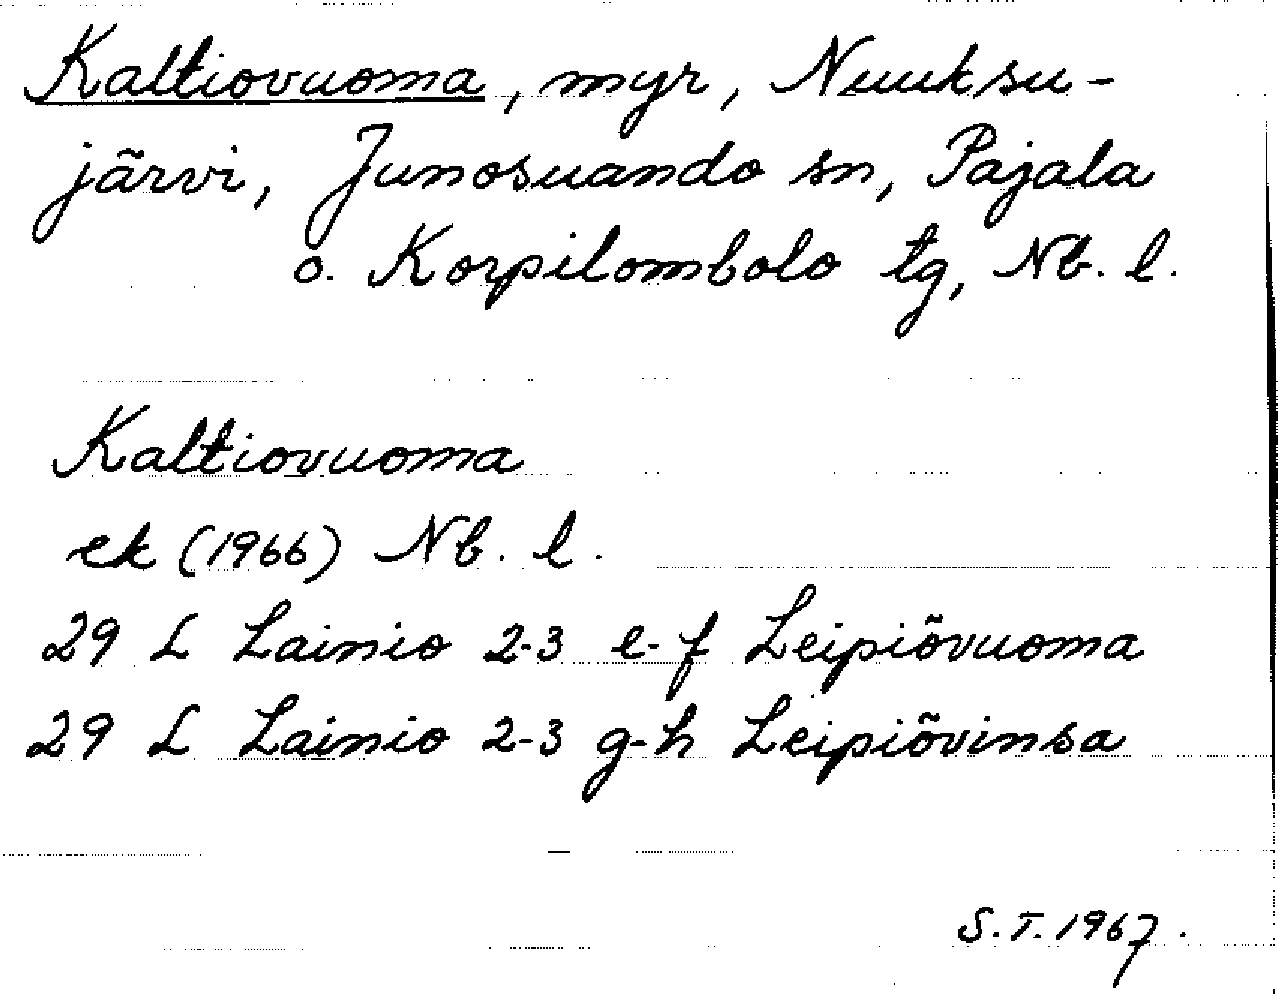 Kaltiovuoma, myr, Nuuksu-
järvi, Junosuando sn, Pajala
o. Korpilombolo tg, Nb. l.
Kaltiovuoma
ek (1966) Nb. l.
29 L Lainio 2-3 e-f Leipiövuoma
29 L Lainio 2-3 g-h Leipiövinsa
S.T. 1967.